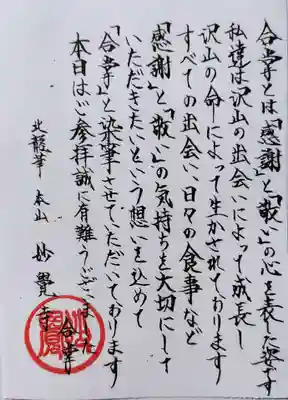 合掌とは「感謝」と「敬い」の心を表した姿です
私達は沢山の出会いによって成長し
沢山の命によって生かされております
すべての出会い、日々の食事など
「感謝」と「敬い」の気持ちを大切にして
いただきたいという想いを込めて
「合掌」と染筆させていただいております
本日はご参拝誠に有難うございました
合掌
北龍華 本山 妙覺寺